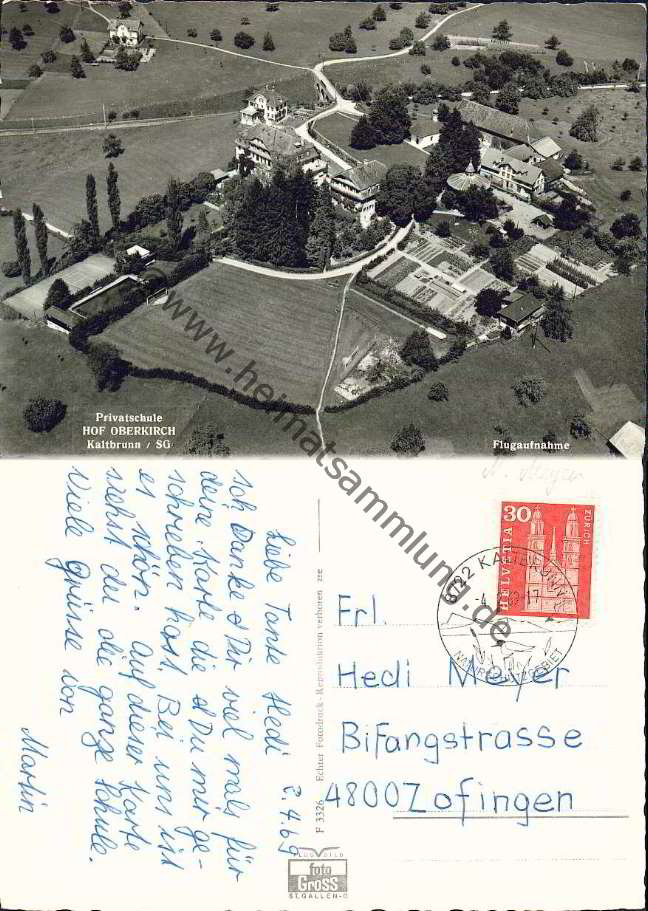 Privatschule
HOF OBERKIRCH
Kaltbrunn / SG
Flugaufnahme
www.heimatsammlung.de
Liebe Tante Hedi 2.4.69
Ich Danke Dir viel mals für
deine Karte die Du mir ge-
schrieben hast. Bei uns ist
es schön. Auf dieser Karte
siehst du die ganze Schule.
Viele grüsse von
Martin
F 3326 Echter Fotodruck - Reproduktion verboten
FLUGBILD
foto
GROSS
ST.GALLEN-O
M. Meyer
30
HELVETIA
ZÜRICH
8722 KALTBRUNN
NATURSCHUTZGEBIET
Frl.
Hedi Meyer
Bifangstrasse
4800 Zofingen